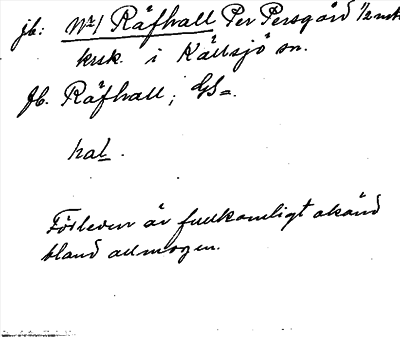 jb: No 1 Räfhall Per Persgård 1/2 mtl
krsk. i Källsjö sn.
Jb. Räfhall; GS=.
hal.
Förleden är fullkomligt okänd
bland allmogen.